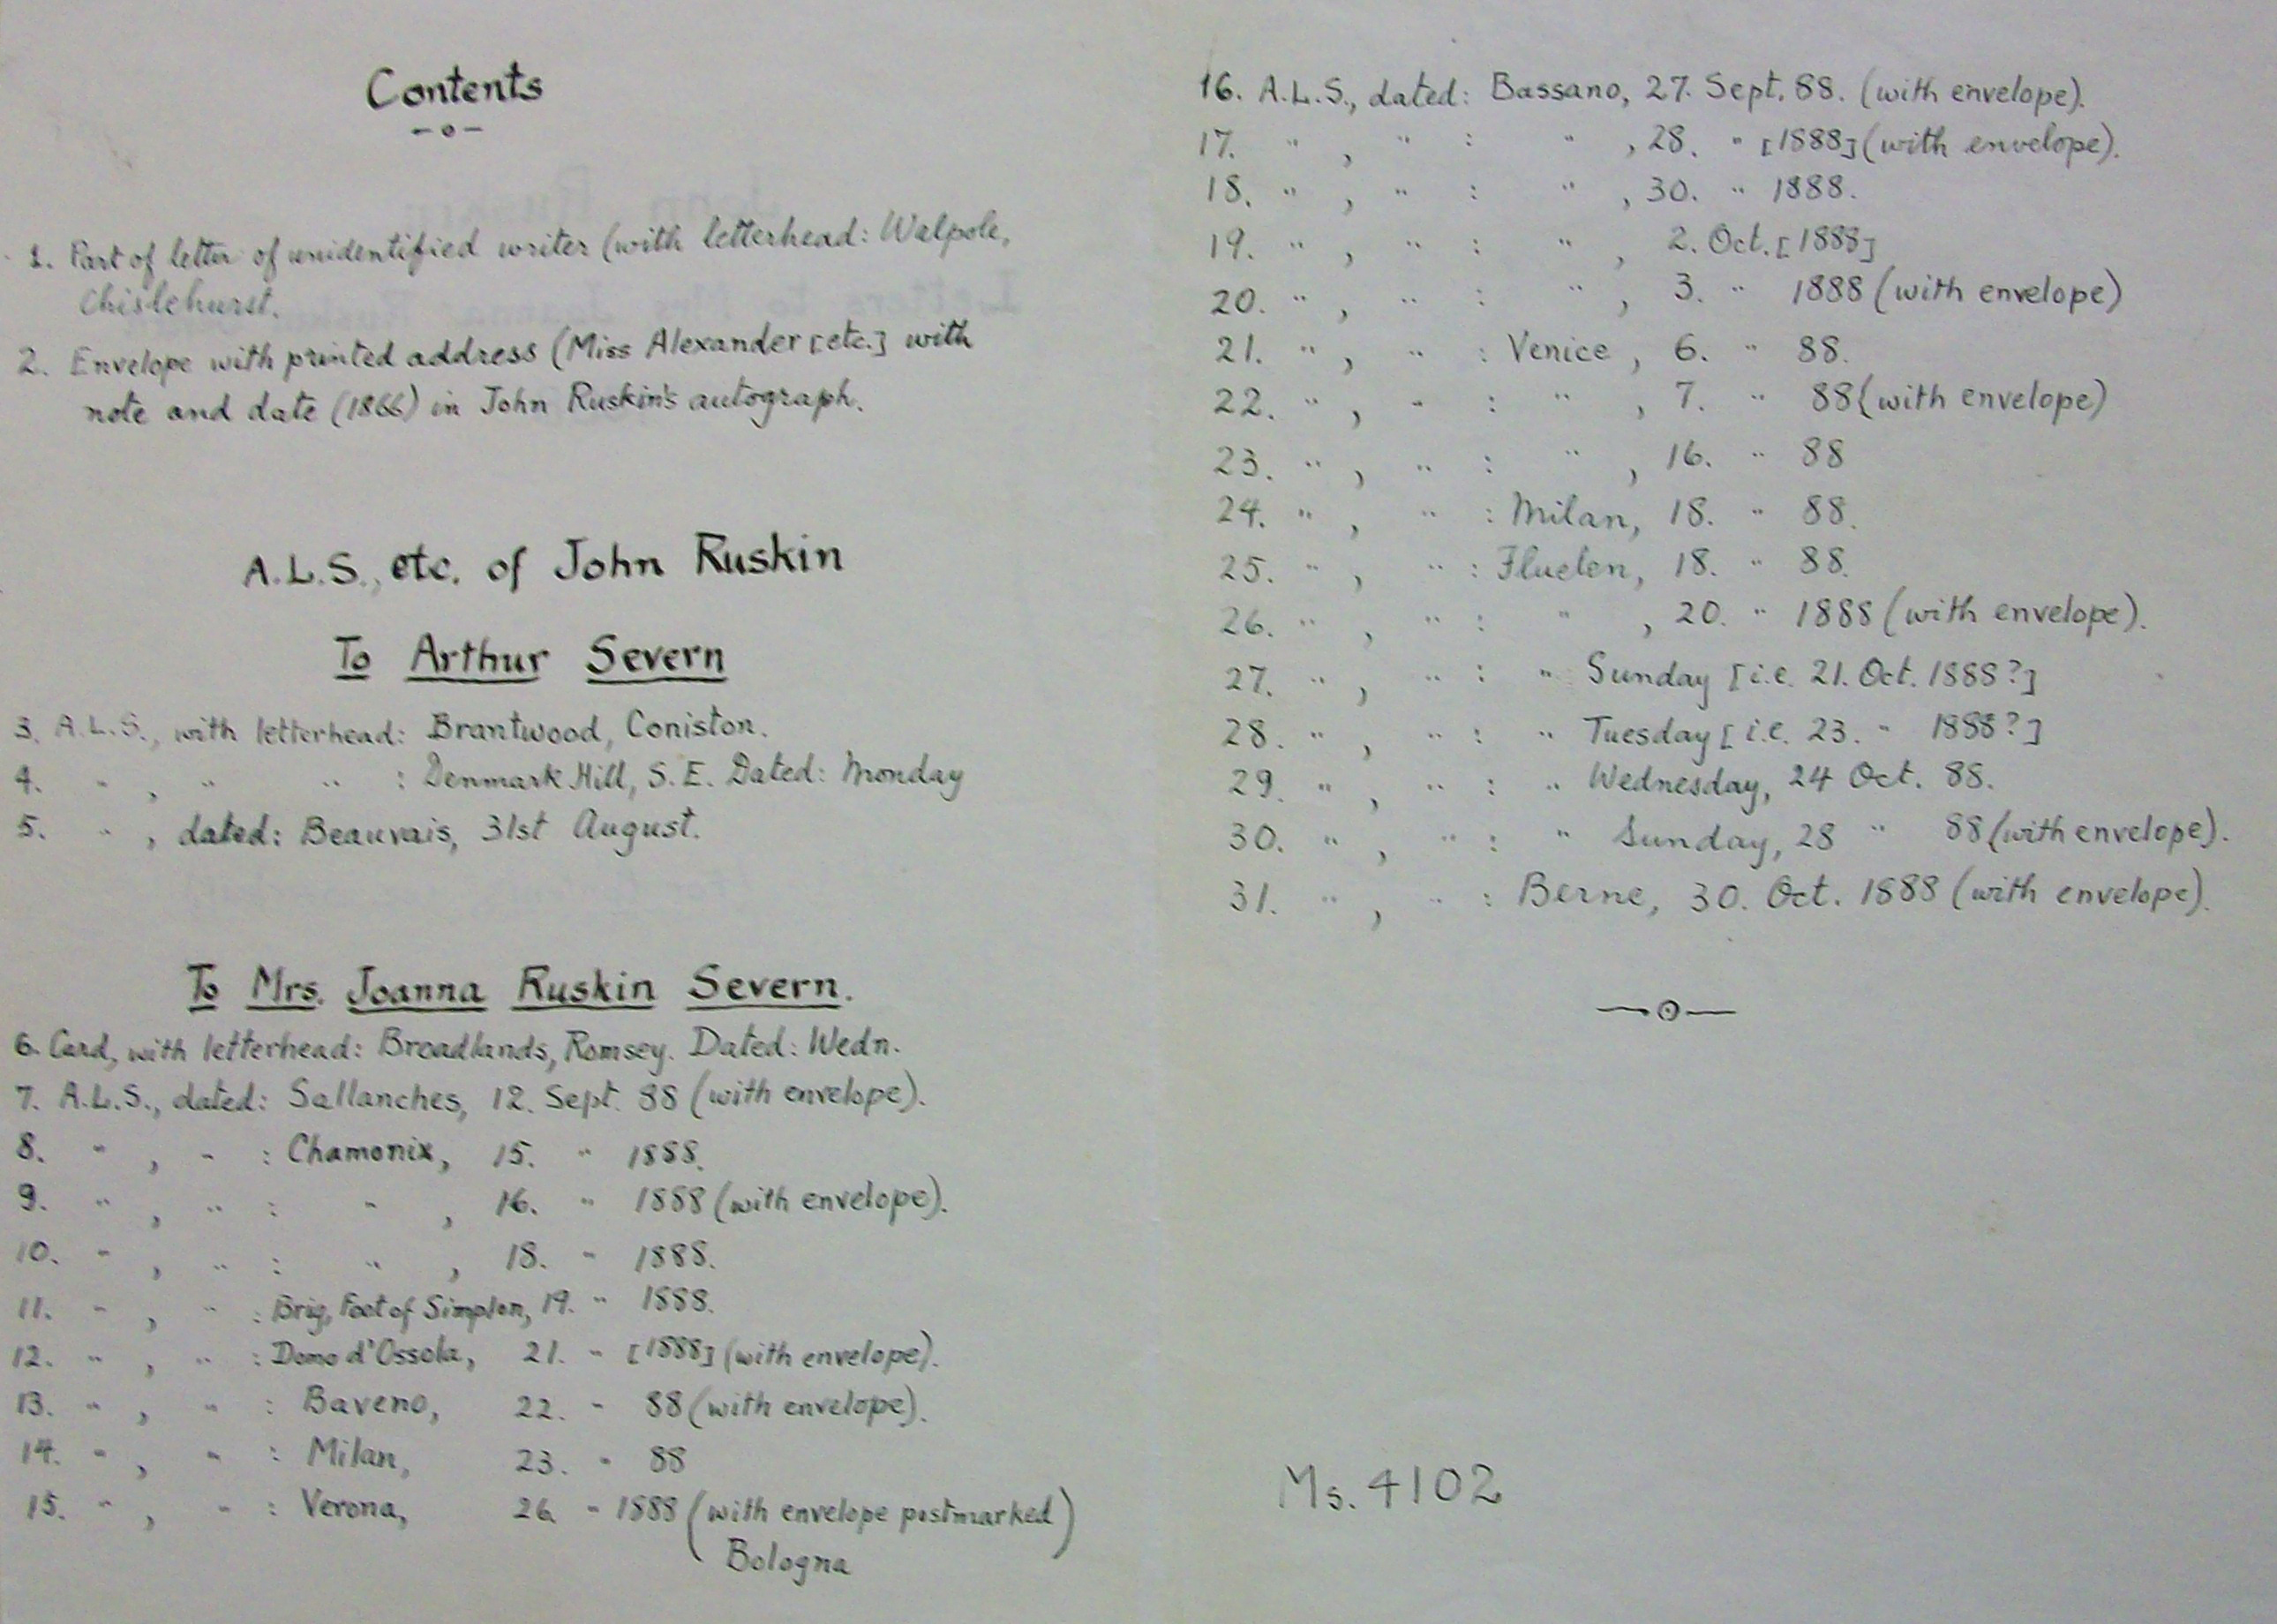 Contents
1. Part of letter of unidentified writer (with letterhead: Walpole,
Chislehurst.
2. Envelope with printed address (Miss Alexander [etc.] with
note and date (1866) in John Ruskin's autograph.
A.L.S., etc. of John Ruskin
To Arthur Severn
3. A.L.S., with letterhead: Brantwood, Coniston.
4. " , " " : Denmark Hill, S.E. Dated: Monday
5. " , dated: Beauvais, 31st August.
To Mrs. Joanna Ruskin Severn.
6. Card, with letterhead: Broadlands, Romsey. Dated: Wedn.
7. A.L.S., dated: Sallanches, 12. Sept. 88 (with envelope).
8. " , " : Chamonix, 15. " 1888.
9. " , " : " , 16. " 1888 (with envelope).
10. " , " : " , 18. " 1888.
11. " , " : Brig, Foot of Simplon, 19. " 1888.
12. " , " : Domo d'Ossola, 21. " [1888] (with envelope).
13. " , " : Baveno, 22. " 88 (with envelope).
14. " , " : Milan, 23. " 88
15. " , " : Verona, 26. " 1888 (with envelope postmarked)
Bologna
16. A.L.S., dated: Bassano, 27. Sept. 88. (with envelope).
17. " , " : " , 28. " [1888] (with envelope).
18. " , " : " , 30. " 1888.
19. " , " : " , 2. Oct. [1888]
20. " , " : " , 3. " 1888 (with envelope)
21. " , " : Venice , 6. " 88.
22. " , " : " , 7. " 88 (with envelope)
23. " , " : " , 16. " 88
24. " , " : Milan, 18. " 88.
25. " , " : Fluelen, 18. " 88.
26. " , " : " , 20. " 1888 (with envelope).
27. " , " : " Sunday [i.e. 21. Oct. 1888?]
28. " , " : " Tuesday [i.e. 23. " 1888?]
29. " , " : " Wednesday, 24 Oct. 88.
30. " , " : " Sunday, 28 " 88 (with envelope).
31. " , " : Berne, 30. Oct. 1888 (with envelope).
Ms. 4102